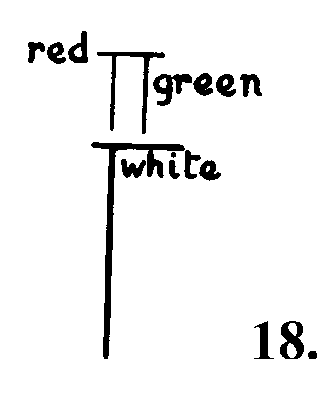 red
green
white
18.